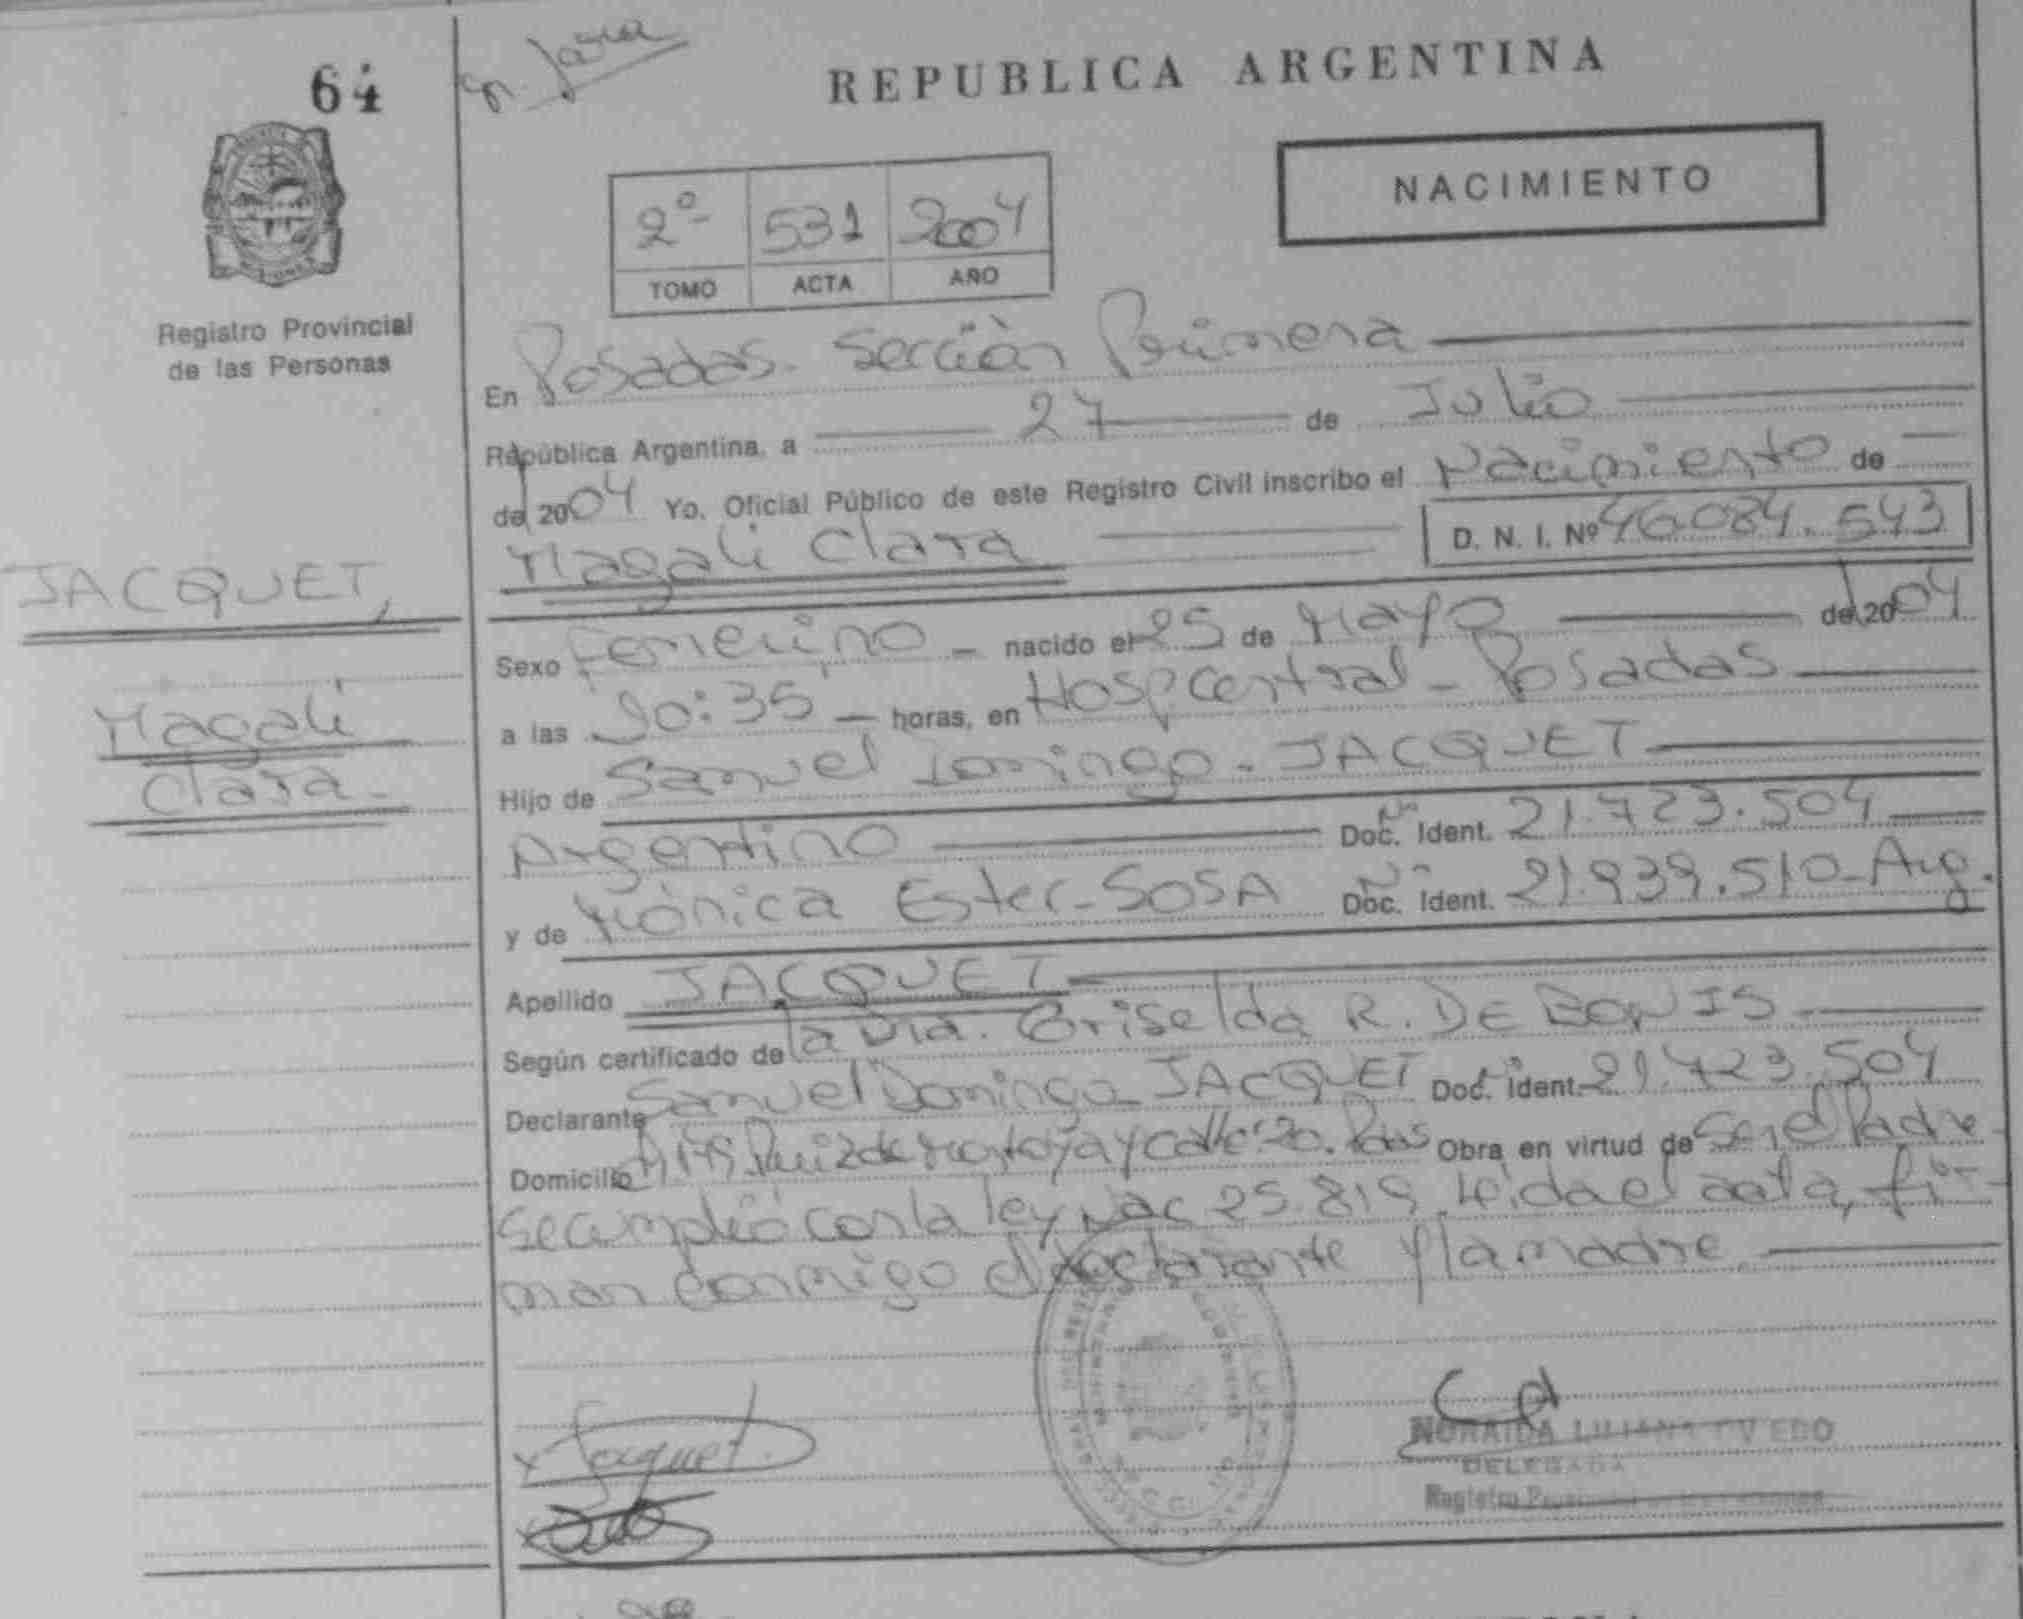 64
REPUBLICA ARGENTINA
NACIMIENTO
2º 531 2004
TOMO ACTA AÑO
Registro Provincial
de las Personas
En Posadas. Sección Primera
República Argentina, a 27 de Julio
de 2004 Yo, Oficial Público de este Registro Civil inscribo el Nacimiento de
Magali Clara D. N. I. Nº 46.084.543
JACQUET,
Magali
Clara-
Sexo Femenino - nacido el 25 de Mayo de 2004
a las 20:35 - horas, en Hosp Central - Posadas
Hijo de Samuel Domingo - JACQUET
Argentino Doc. Ident. 21.723.504
y de Mónica Ester - SOSA Doc. Ident. 21.939.510 - Arg.
Apellido JACQUET
Según certificado de la Dra. Griselda R. DE BONIS
Declarante Samuel Domingo JACQUET Doc. Ident. 21.723.504
Domicilio Ruiz de Montoya y calle Obra en virtud de Ser el Padre
Se cumplió con la ley Nac 25.819. Leída el acta, fir-
man conmigo el declarante y la madre.
Jacquet
NORAIDA LILIANA OVIEDO
DELEGADA
Registro